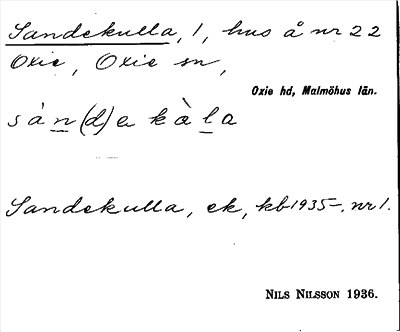 Sandekulla, 1, hus å nr 22
Oxie, Oxie sn,
Oxie hd, Malmöhus län.
sán(d)e kàla
Sandekulla, ek, kb 1935–. nr 1.
NILS NILSSON 1936.